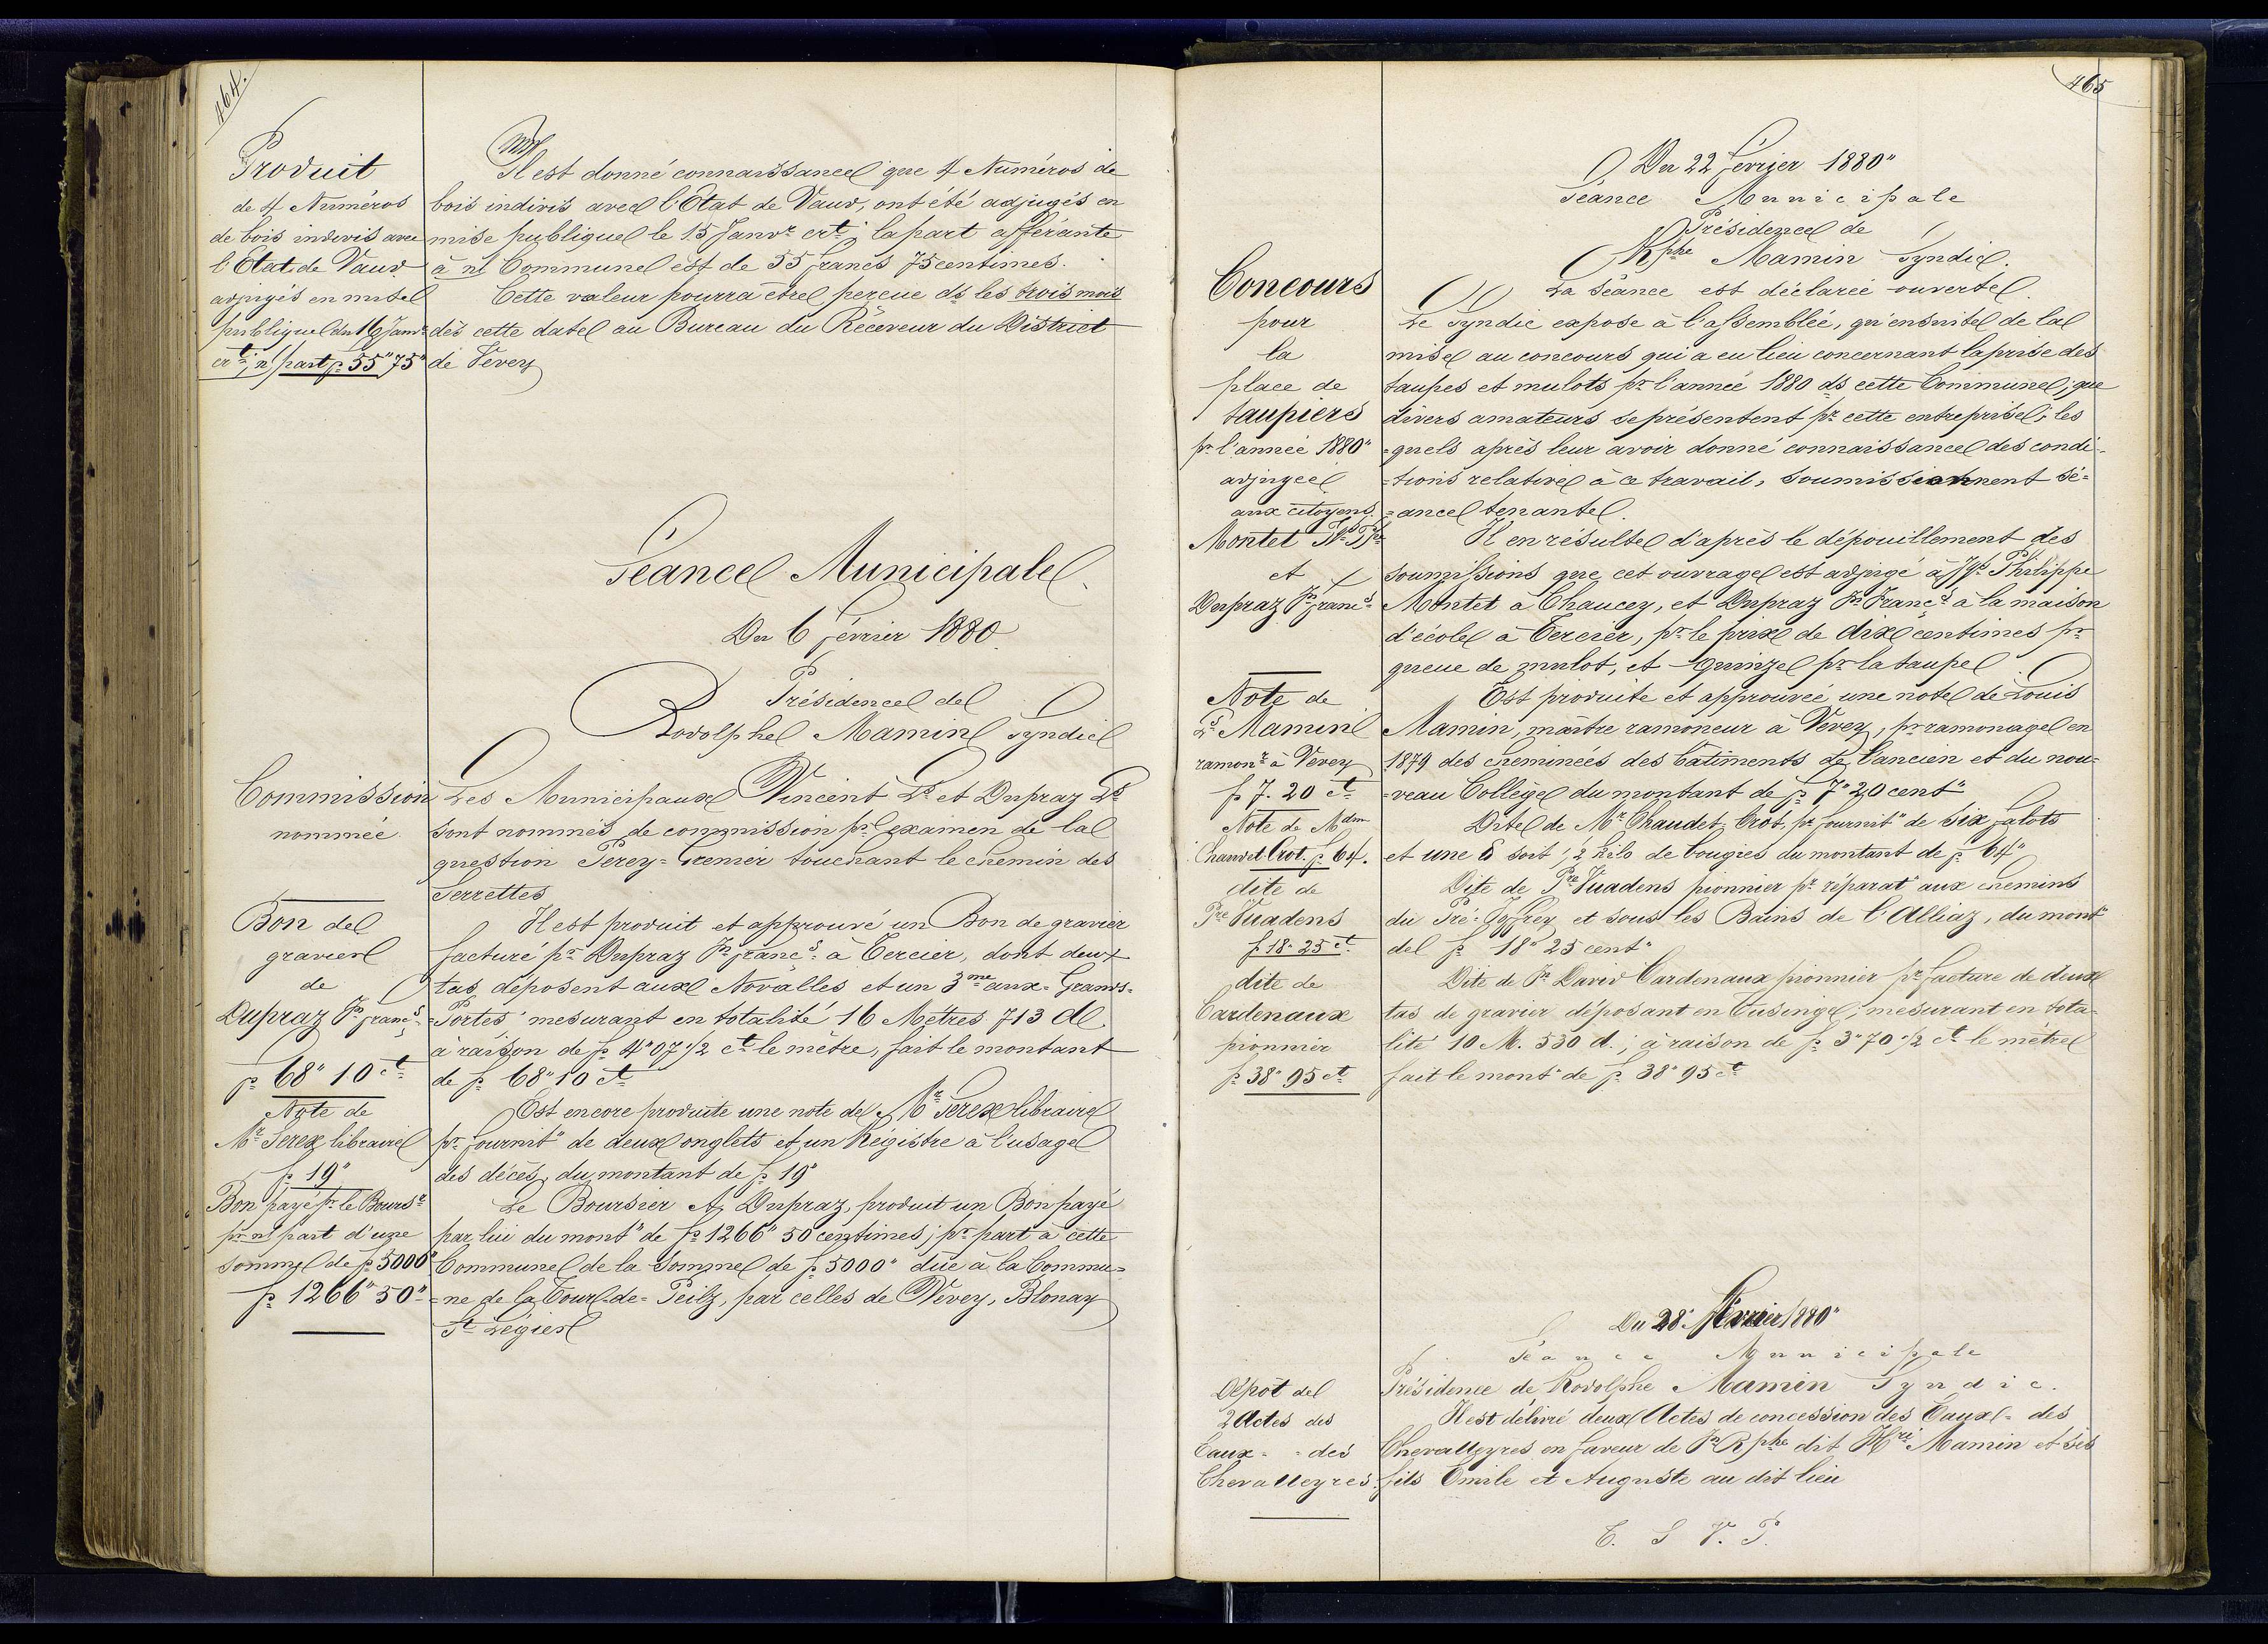 464.
Produit
de 4 Numéros
de bois indivis avec
l'Etat de Vaud
adjugés en mise
publique du 16 Janvr
crt; n/ part fr 55" 75"
Il est donné connaissance que 4 Numéros de
bois indivis avec l'Etat de Vaud, ont été adjugés en
mise publique le 15 Janvr crt; la part afférante
à n/ Commune est de 55 francs 75 centimes.
Cette valeur pourra être percue ds les trois mois
dès cette date au Bureau du Réceveur du District
de Vevey
Séance Municipale.
Du 6 février 1880.
Présidence de
Rodolphe Mamin Syndic
Commission
nommée.
Les Municipaux Vincent Ls et Dupraz Ls
sont nommés de commission pr l'examen de la
question Perey=Grenier touchant le chemin des
Serrettes
Bon de
gravier
de
Dupraz Jn francs
fr 68" 10 ct
Il est produit et approuvé un Bon de gravier
facturé pr Dupraz Jn francs à Tercier, dont deux
tas déposent aux Novalles et un 3me aux=Grands=
=Portes mesurant en totalité 16 Mètres 713 d.
à raison de fr 4"07 1/2 ct le mètre, fait le montant
de fr 68"10 ct
Note de
Mr Perex libraire
fr 19"
Est encore produite une note de Mr Perex libraire
pr fournit" de deux onglets et un Régistre à l'usage
des décès, du montant de fr 19"
Bon payé pr le Boursr
pr n/ part d'une
somme de fr 5000"
fr 1266" 50"
Le Boursier A, Dupraz, produit un Bon payé
par lui du mont" de fr 1266" 50 centimes; pr part à cette
Commune de la somme de fr 5000" düe à la Commu=
=ne de la Tour=de=Peilz, par celles de Vevey, Blonay
St Légier
465
Du 22 Février 1880"
Séance Municipale
Présidence de
Rphe Mamin Syndic.
La séance est déclarée ouverte.
Concours
pour
la
place de
taupiers
pr l'année 1880"
adjugée
aux citoyens.
Montet
et
Dupraz Jn francs
Le Syndic expose à l'assemblée, qu'ensuite de la
mise au concours qui a eu lieu concernant la prise des
taupes et mulots pr l'année 1880 ds cette Commune; que
divers amateurs se présentent pr cette entreprise; les
=quels après leur avoir donné connaissance des condi=
=tions relative à ce travail, soumissionnent sé=
=ance tenante.
Il en résulte d'après le dépouillement des
soumissions que cet ouvrage est adjugé à Philippe
Montet à Chaucey, et Dupraz Jn Francs à la maison
d'école à Tercier, pr le prix de dix centimes pr
queue de mulot, et quinze pr la taupe.
Note de
Ls Mamin
ramonr à Vevey
fr 7. 20 ct
Est produite et approuvée une note de Louis
Mamin, maître ramoneur à Vevey, pr ramonage en
1879 des cheminées des bâtiments de l'ancien et du nou=
=veau Collège du montant de fr 7"20 cent"
Note de Mdm
Chaudet Crot. fr 64.
Dite de Mr Chaudet Crot, pr fournit" de six falots
et une soit; 2 kilo de bougies du montant de fr 64"
dite de
Pre Vuadens
fr 18" 25 ct
Dite de Pre Vuadens pionnier pr réparat" aux chemins
du Pré=Joffrey et sous les Bains de l'Alliaz, du mont"
de fr 18" 25 cent"
dite de
Cardenaux
pionnier
fr 38" 95 ct
Dite de Jn David Cardenaux pionnier pr facture de deux
tas de gravier déposant en Tusinge, mesurant en tota=
lité 10 M. 530 d.; à raison de fr 3"70 1/2 ct le mètre
fait le mont" de fr 38" 95 ct
Du 28" Février 1880"
Séance Municipale
Présidence de Rodolphe Mamin Syndic.
Dépôt de
2 Actes des
Eaux= =des
Chevalleyres.
Il est délivré deux Actes de concession des Eaux= des
Chevalleyres en faveur de Jn Rphe dit Hri Mamin et ses
fils Emile et Auguste au dit lieu
T. S V. P.